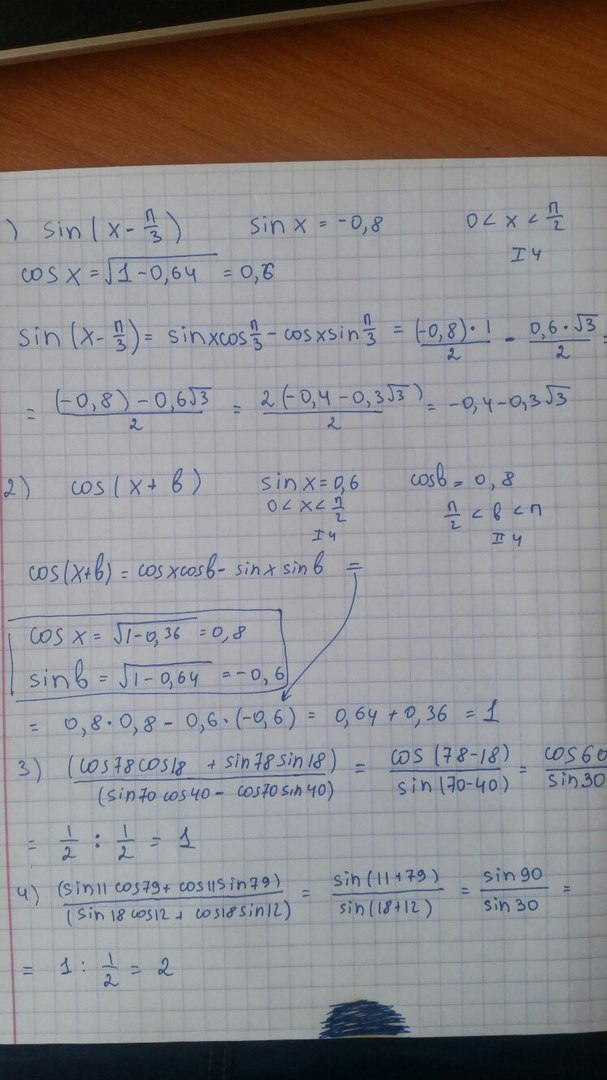 ) sin(x-п/3) sin x = -0,8 0 < x < п/2
I ч
cos x = √(1-0,64) = 0,6
sin(x-п/3) = sinxcosп/3 - cosxsinп/3 = (-0,8)·1/2 - 0,6·√3/2 =
= (-0,8)-0,6√3/2 = 2(-0,4-0,3√3)/2 = -0,4-0,3√3
2) cos(x+в) sin x = 0,6 cosв = 0,8
0 < x < п/2 п/2 < в < п
I ч II ч
cos(x+в) = cosxcosв - sinx sinв =
cos x = √(1-0,36) = 0,8
sinв = √(1-0,64) = -0,6
= 0,8·0,8 - 0,6·(-0,6) = 0,64+0,36 = 1
3) (cos78cos18 + sin78sin18)/(sin70cos40 - cos70sin40) = cos(78-18)/sin(70-40) = cos60/sin30
= 1/2 : 1/2 = 1
4) (sin11cos79 + cos11sin79)/(sin18cos12 + cos18sin12) = sin(11+79)/sin(18+12) = sin90/sin30 =
= 1 : 1/2 = 2